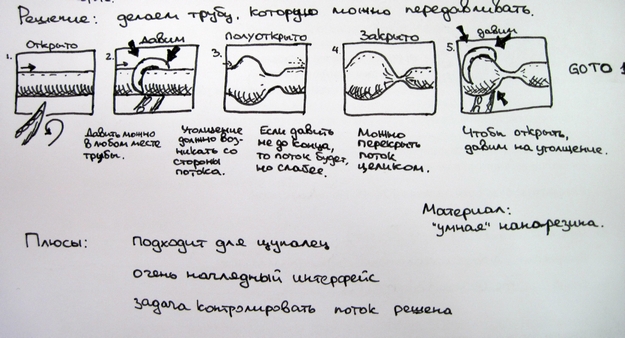 Решение: делаем трубу, которую можно передавливать.
1. Открыто
2. Давим
3. Полуоткрыто
4. Закрыто
5. давим
GOTO 1
Давить можно
в любом месте
трубы.
Утолщение
должно воз-
никать со
стороны
потока.
Если давить
не до конца,
то поток будет,
но слабее.
Можно
перекрыть
поток
целиком.
Чтобы открыть,
давим на утолщение.
Материал:
"умная" нанорезина.
Плюсы:
подходит для щупалец
очень наглядный интерфейс
задача контролировать поток решена